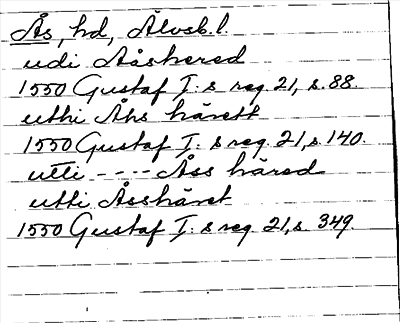 Ås, hd, Älvsb. l.
udi Aåsherad
1550 Gustaf I:s reg. 21, s. 88.
utthi Åhs härett
1550 Gustaf I:s reg. 21, s. 140.
utti ---- Åss härad
utti Åsshäret
1550 Gustaf I:s reg. 21, s. 349.